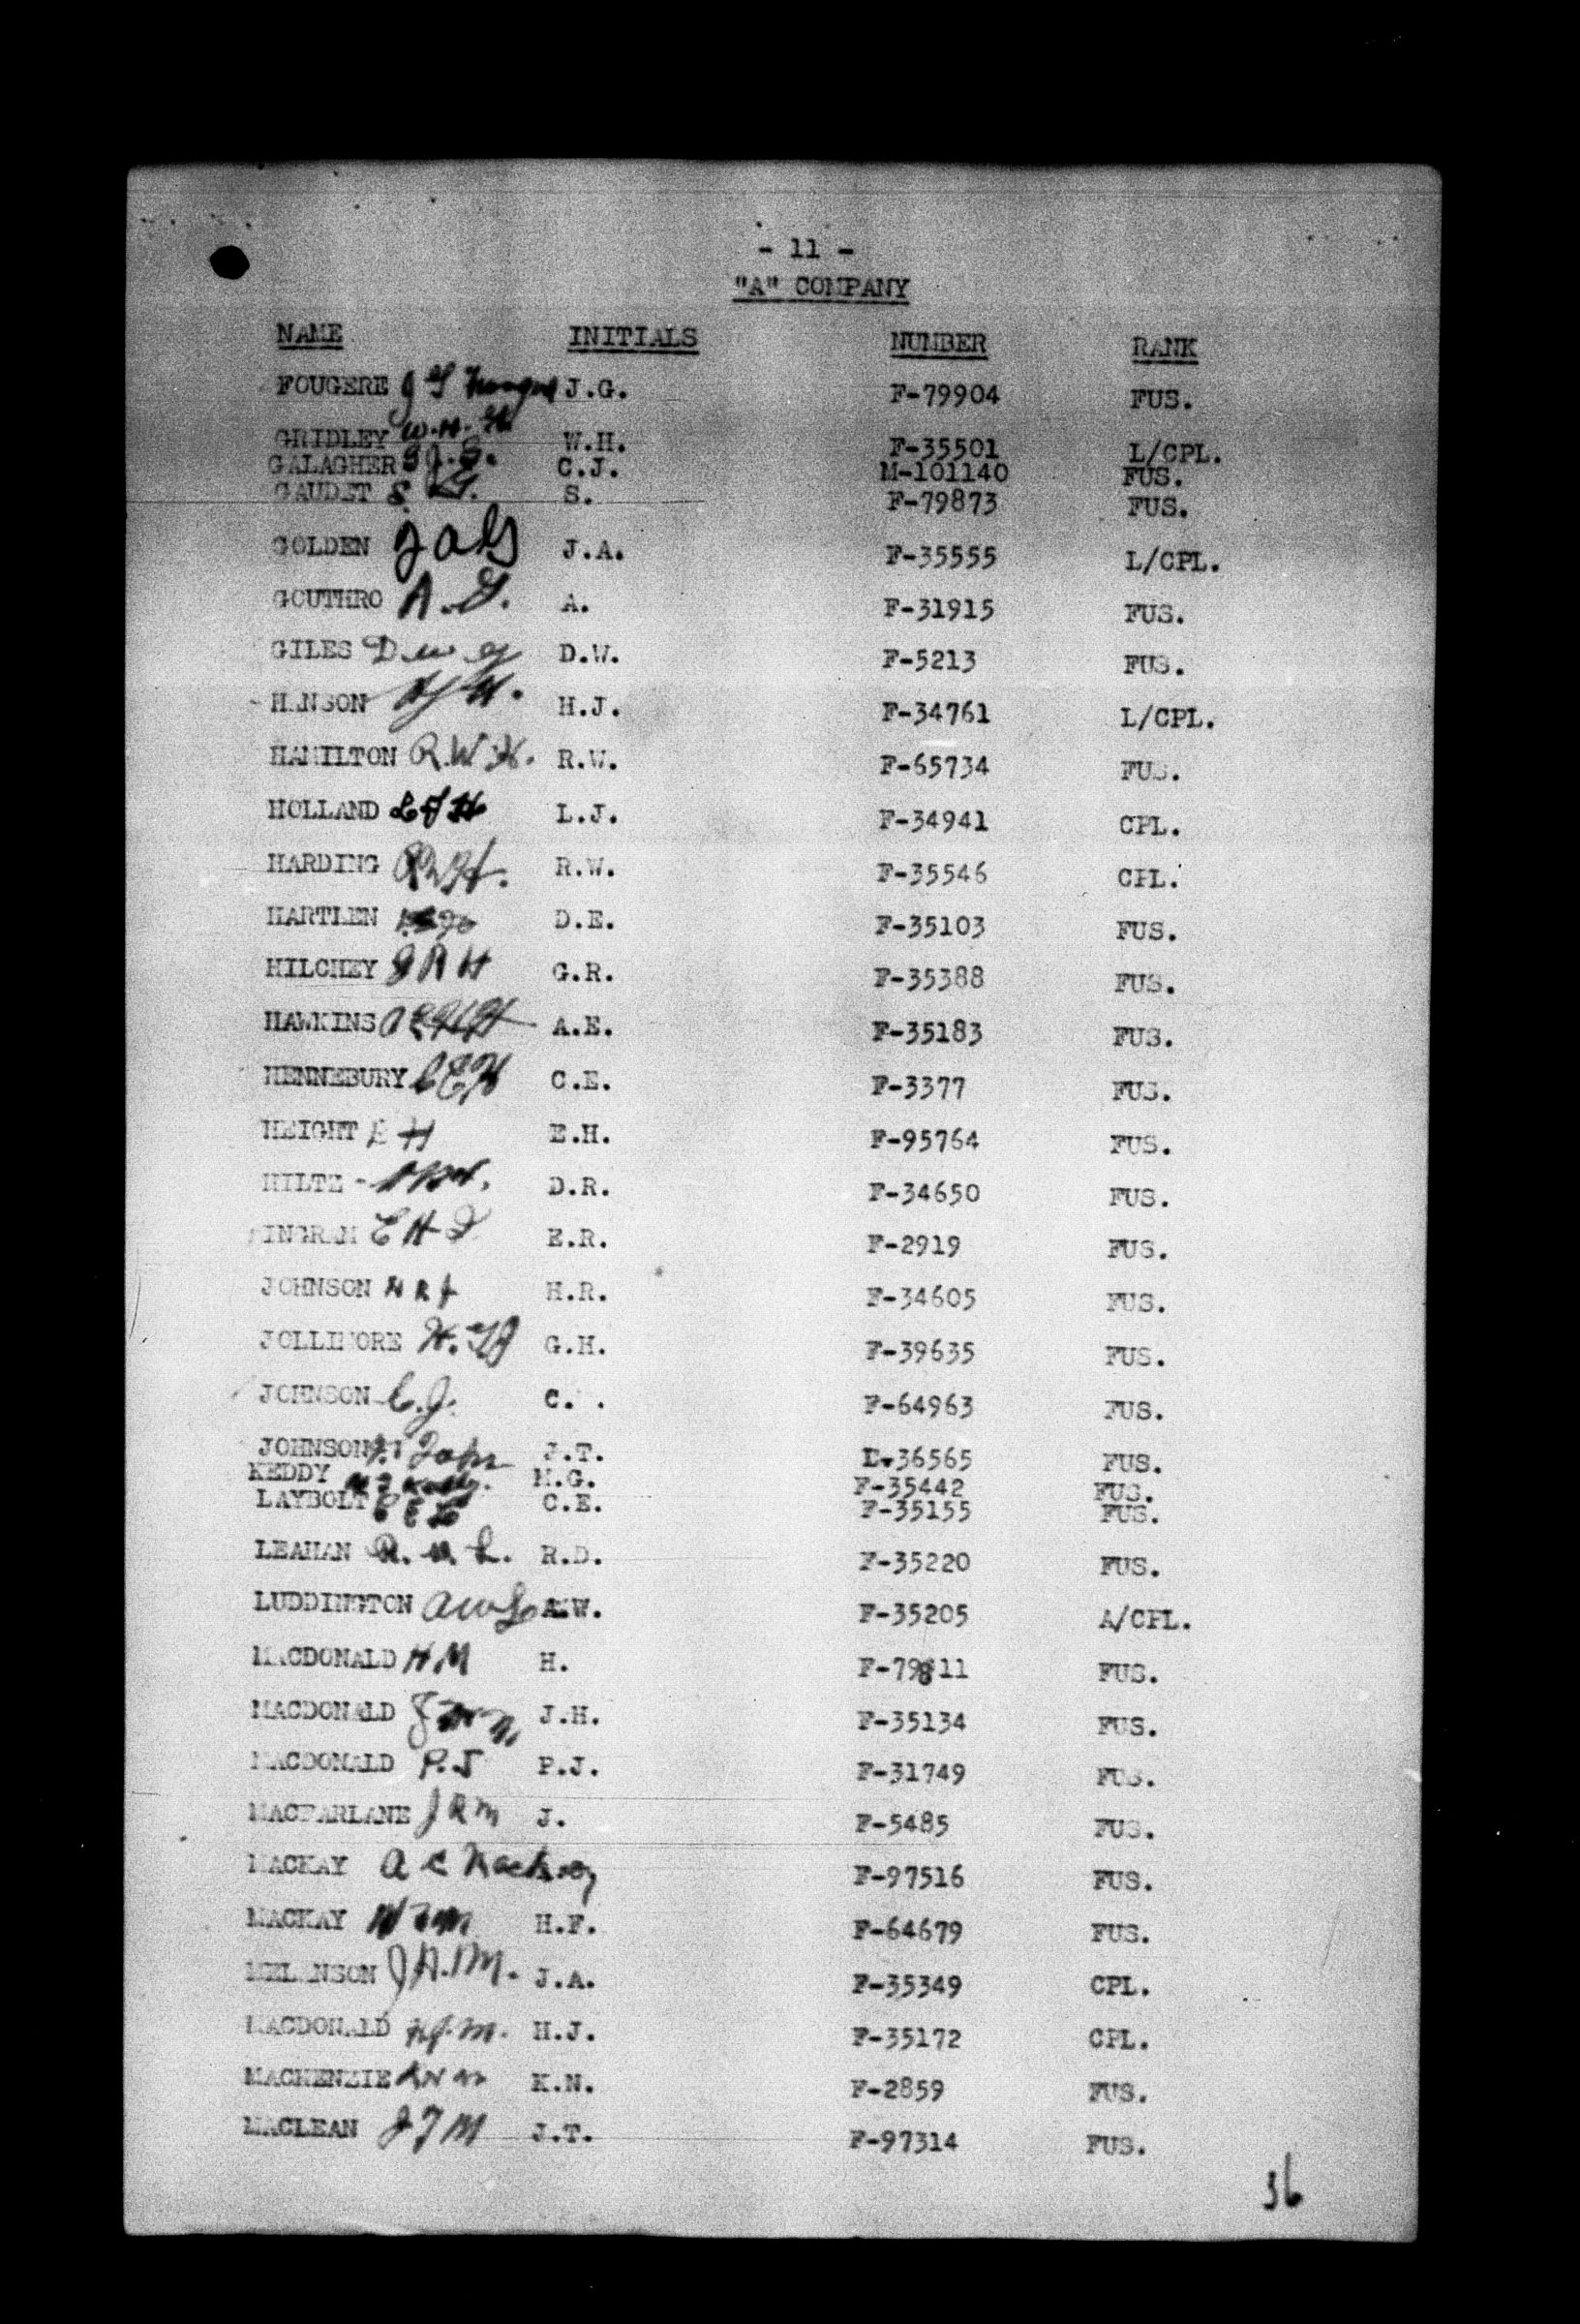 - 11 -
"A" COMPANY
NAME INITIALS NUMBER RANK
FOUGERE J.G. F-79904 FUS.
GRIDLEY W.H. W.H. F-35501 L/CPL.
GALAGHER C.J. M-101140 FUS.
GAUDET S. S. F-79873 FUS.
GOLDEN J.A. F-35555 L/CPL.
GOUTHRO A.G. A. F-31915 FUS.
GILES D.W. F-5213 FUS.
HANSON H.J. F-34761 L/CPL.
HAMILTON R.W.H. R.W. F-65734 FUS.
HOLLAND LJH L.J. F-34941 CPL.
HARDING RWH. R.W. F-35546 CPL.
HARTLEN D.E. F-35103 FUS.
HILCHEY G R H G.R. F-35388 FUS.
HAWKINS A.E. F-35183 FUS.
HENNEBURY CEH C.E. F-3377 FUS.
HEIGHT E H E.H. F-95764 FUS.
HILTZ D.R. F-34650 FUS.
INGRAM E H I E.R. F-2919 FUS.
JOHNSON H R J H.R. F-34605 FUS.
JOLLIMORE H.GJ G.H. F-39635 FUS.
JOHNSON C.J. C. . F-64963 FUS.
JOHNSON J.T. 36565 FUS.
KEDDY M.G. F-35442 FUS.
LAYBOLT C E L C.E. F-35155 FUS.
LEAHAN R.D.L. R.D. F-35220 FUS.
LUDDINGTON AWL A.W. F-35205 A/CPL.
MACDONALD H M H. F-79811 FUS.
MACDONALD J.H. F-35134 FUS.
MACDONALD P.J P.J. F-31749 FUS.
MACFARLANE J R M J. F-5485 FUS.
MACKAY A C Mackay F-97516 FUS.
MACKAY H F M H.F. F-64679 FUS.
MELANSON J.A.M. J.A. F-35349 CPL.
MACDONALD H.J.M. H.J. F-35172 CPL.
MACKENZIE K N M K.N. F-2859 FUS.
MACLEAN J T M J.T. F-97314 FUS.
36